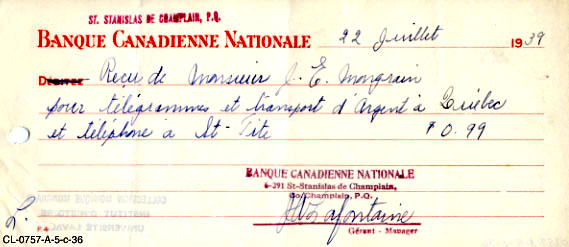 ST. STANISLAS DE CHAMPLAIN, P.Q.
BANQUE CANADIENNE NATIONALE 22 Juillet 1939
Débiter Reçu de Monsieur J. E. Mongrain
pour télégrammes et transport d'Argent à Québec
et téléphone à St-Tite $0.99
BANQUE CANADIENNE NATIONALE
6-291 St-Stanislas de Champlain,
Co/Champlain, P.Q.
Lafontaine
Gérant - Manager
L.
CL-0757-A-5-c-36